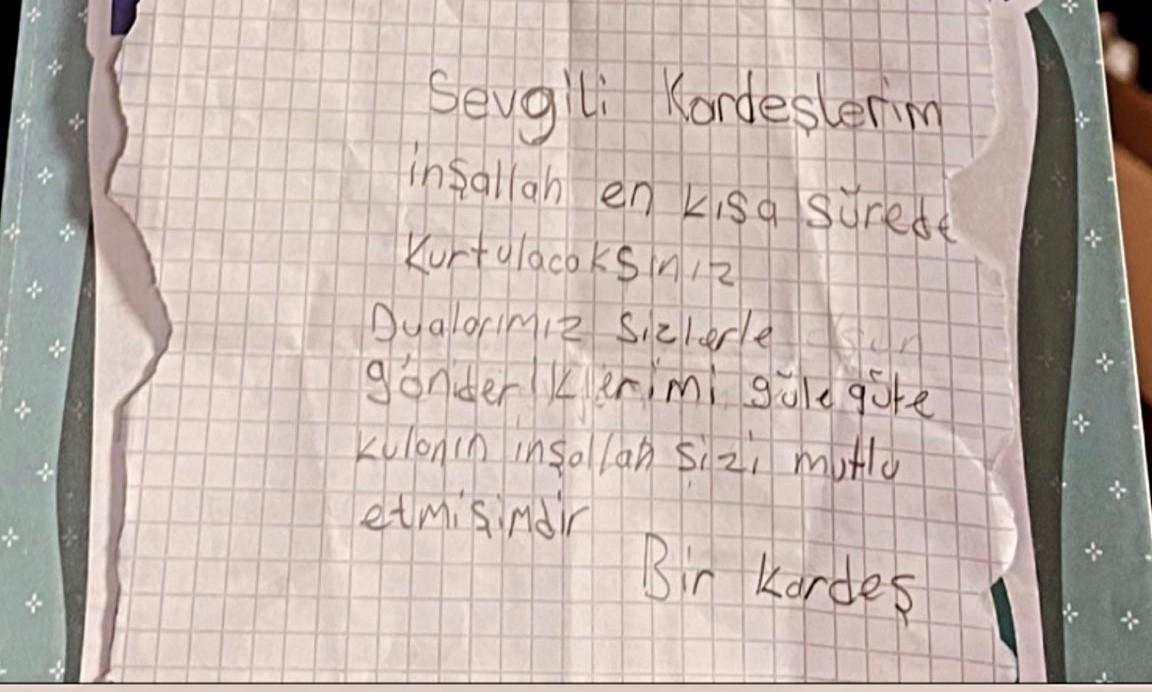 Sevgili Kardeşlerim
inşallah en kısa sürede
Kurtulacaksınız
Dualarımız sizlerle
gönderiklerimi güle güle
kulanın inşallah sizi mutlu
etmişimdir
Bir kardeş